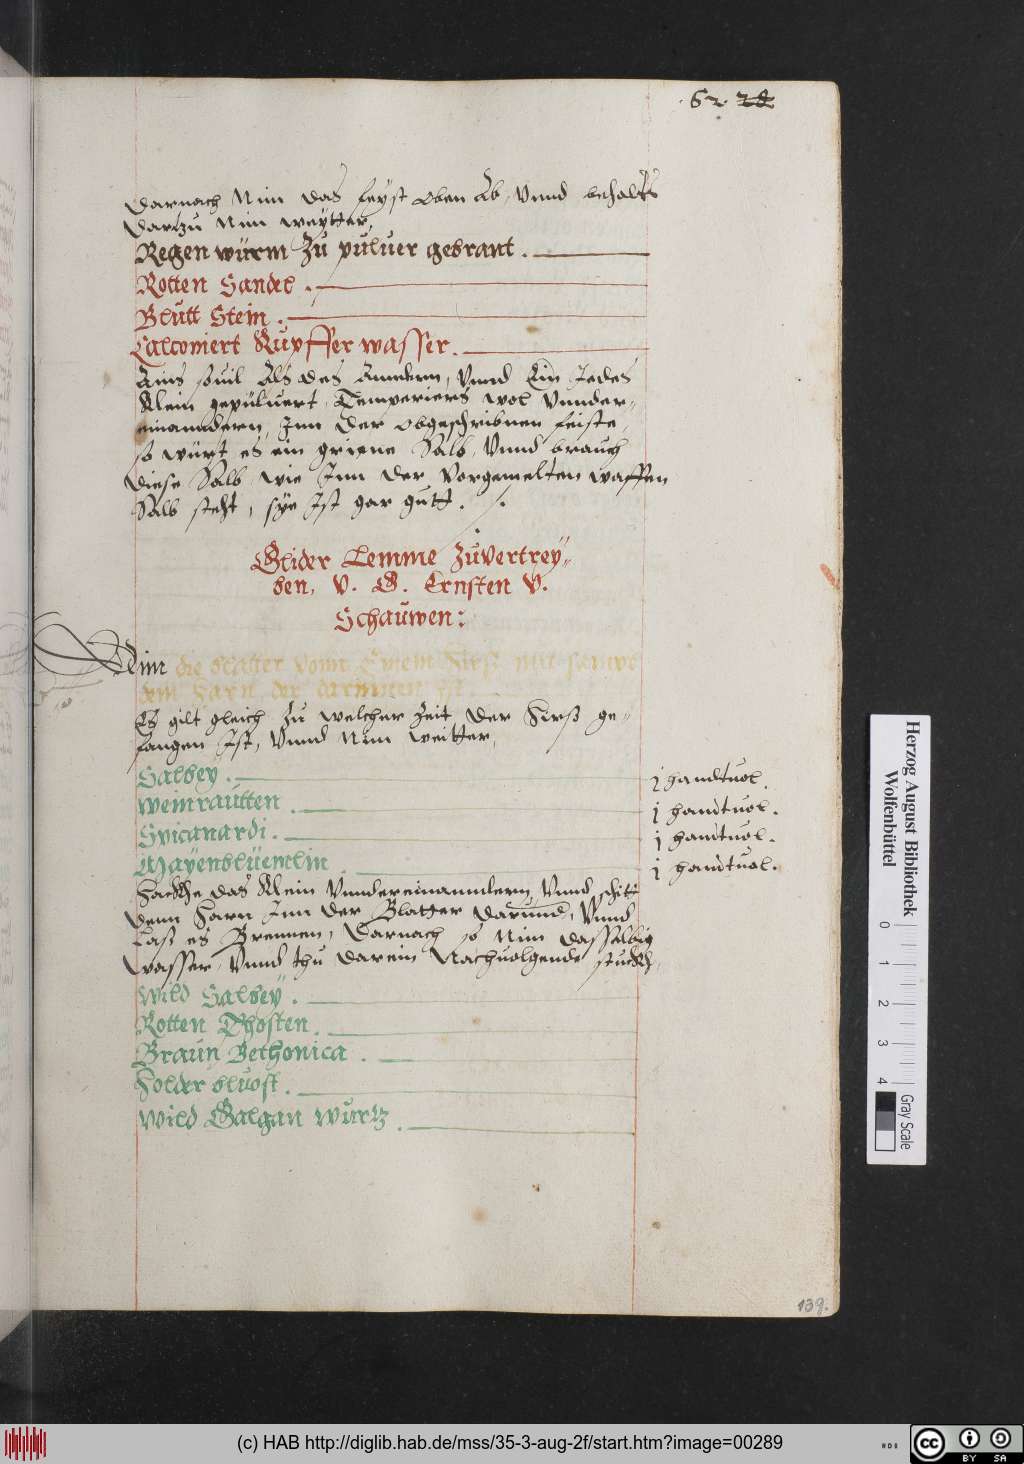 62. 28
Darnach Nim das feyst oben Ab, Vnnd behalts
Dartzu Nim weytter,
Regen würm Zu puluer gebrant.
Rotten Sandel.
Blutt Stein.
Calconiert Kupffer wasser.
Ains souil Als des Anndern, Vnnd Ein Jedes
Klein gepuluert, Temperiers wol Vnnder=
einanndern, Inn der obgeschribnen feiste,
so würt es ein griene Salb, Vnnd brauch
diese Salb wie Inn der Vorgemelten waffen
Salb steht, sye Ist gar gutt.
Glider Lemme Zuvertrey=
ben, V. G. Ernsten V.
Schauwen:
Nim die blatter vonn Einem Hirß mit sampt
dem harn der darinnen ist.
Es gilt gleich Zu welcher Zeit der Hirß ge=
fangen Ist, Vnnd Nim weitter,
Salbey. j handtuol.
Weinrautten. j handtuol.
Spicanardi. j handtuol.
Mayenbluemlin. j handtuol.
Hackhe das Klein Vnndereinanndern, Vnnd schitt
denn Harn Inn der Blatter darunnd, Vnnd
Laß es Brennen, Darnach so Nim dasselbig
Wasser, Vnnd thu darein Nachuolgende stuckh,
Wild Salbey.
Rotten Dhosten.
Braun Bethonica.
Holder bluost.
Wild Galgan wurtz.
139.
Herzog August Bibliothek
Wolfenbüttel
0 1 2 3 4
Gray Scale
(c) HAB http://diglib.hab.de/mss/35-3-aug-2f/start.htm?image=00289
cc BY SA